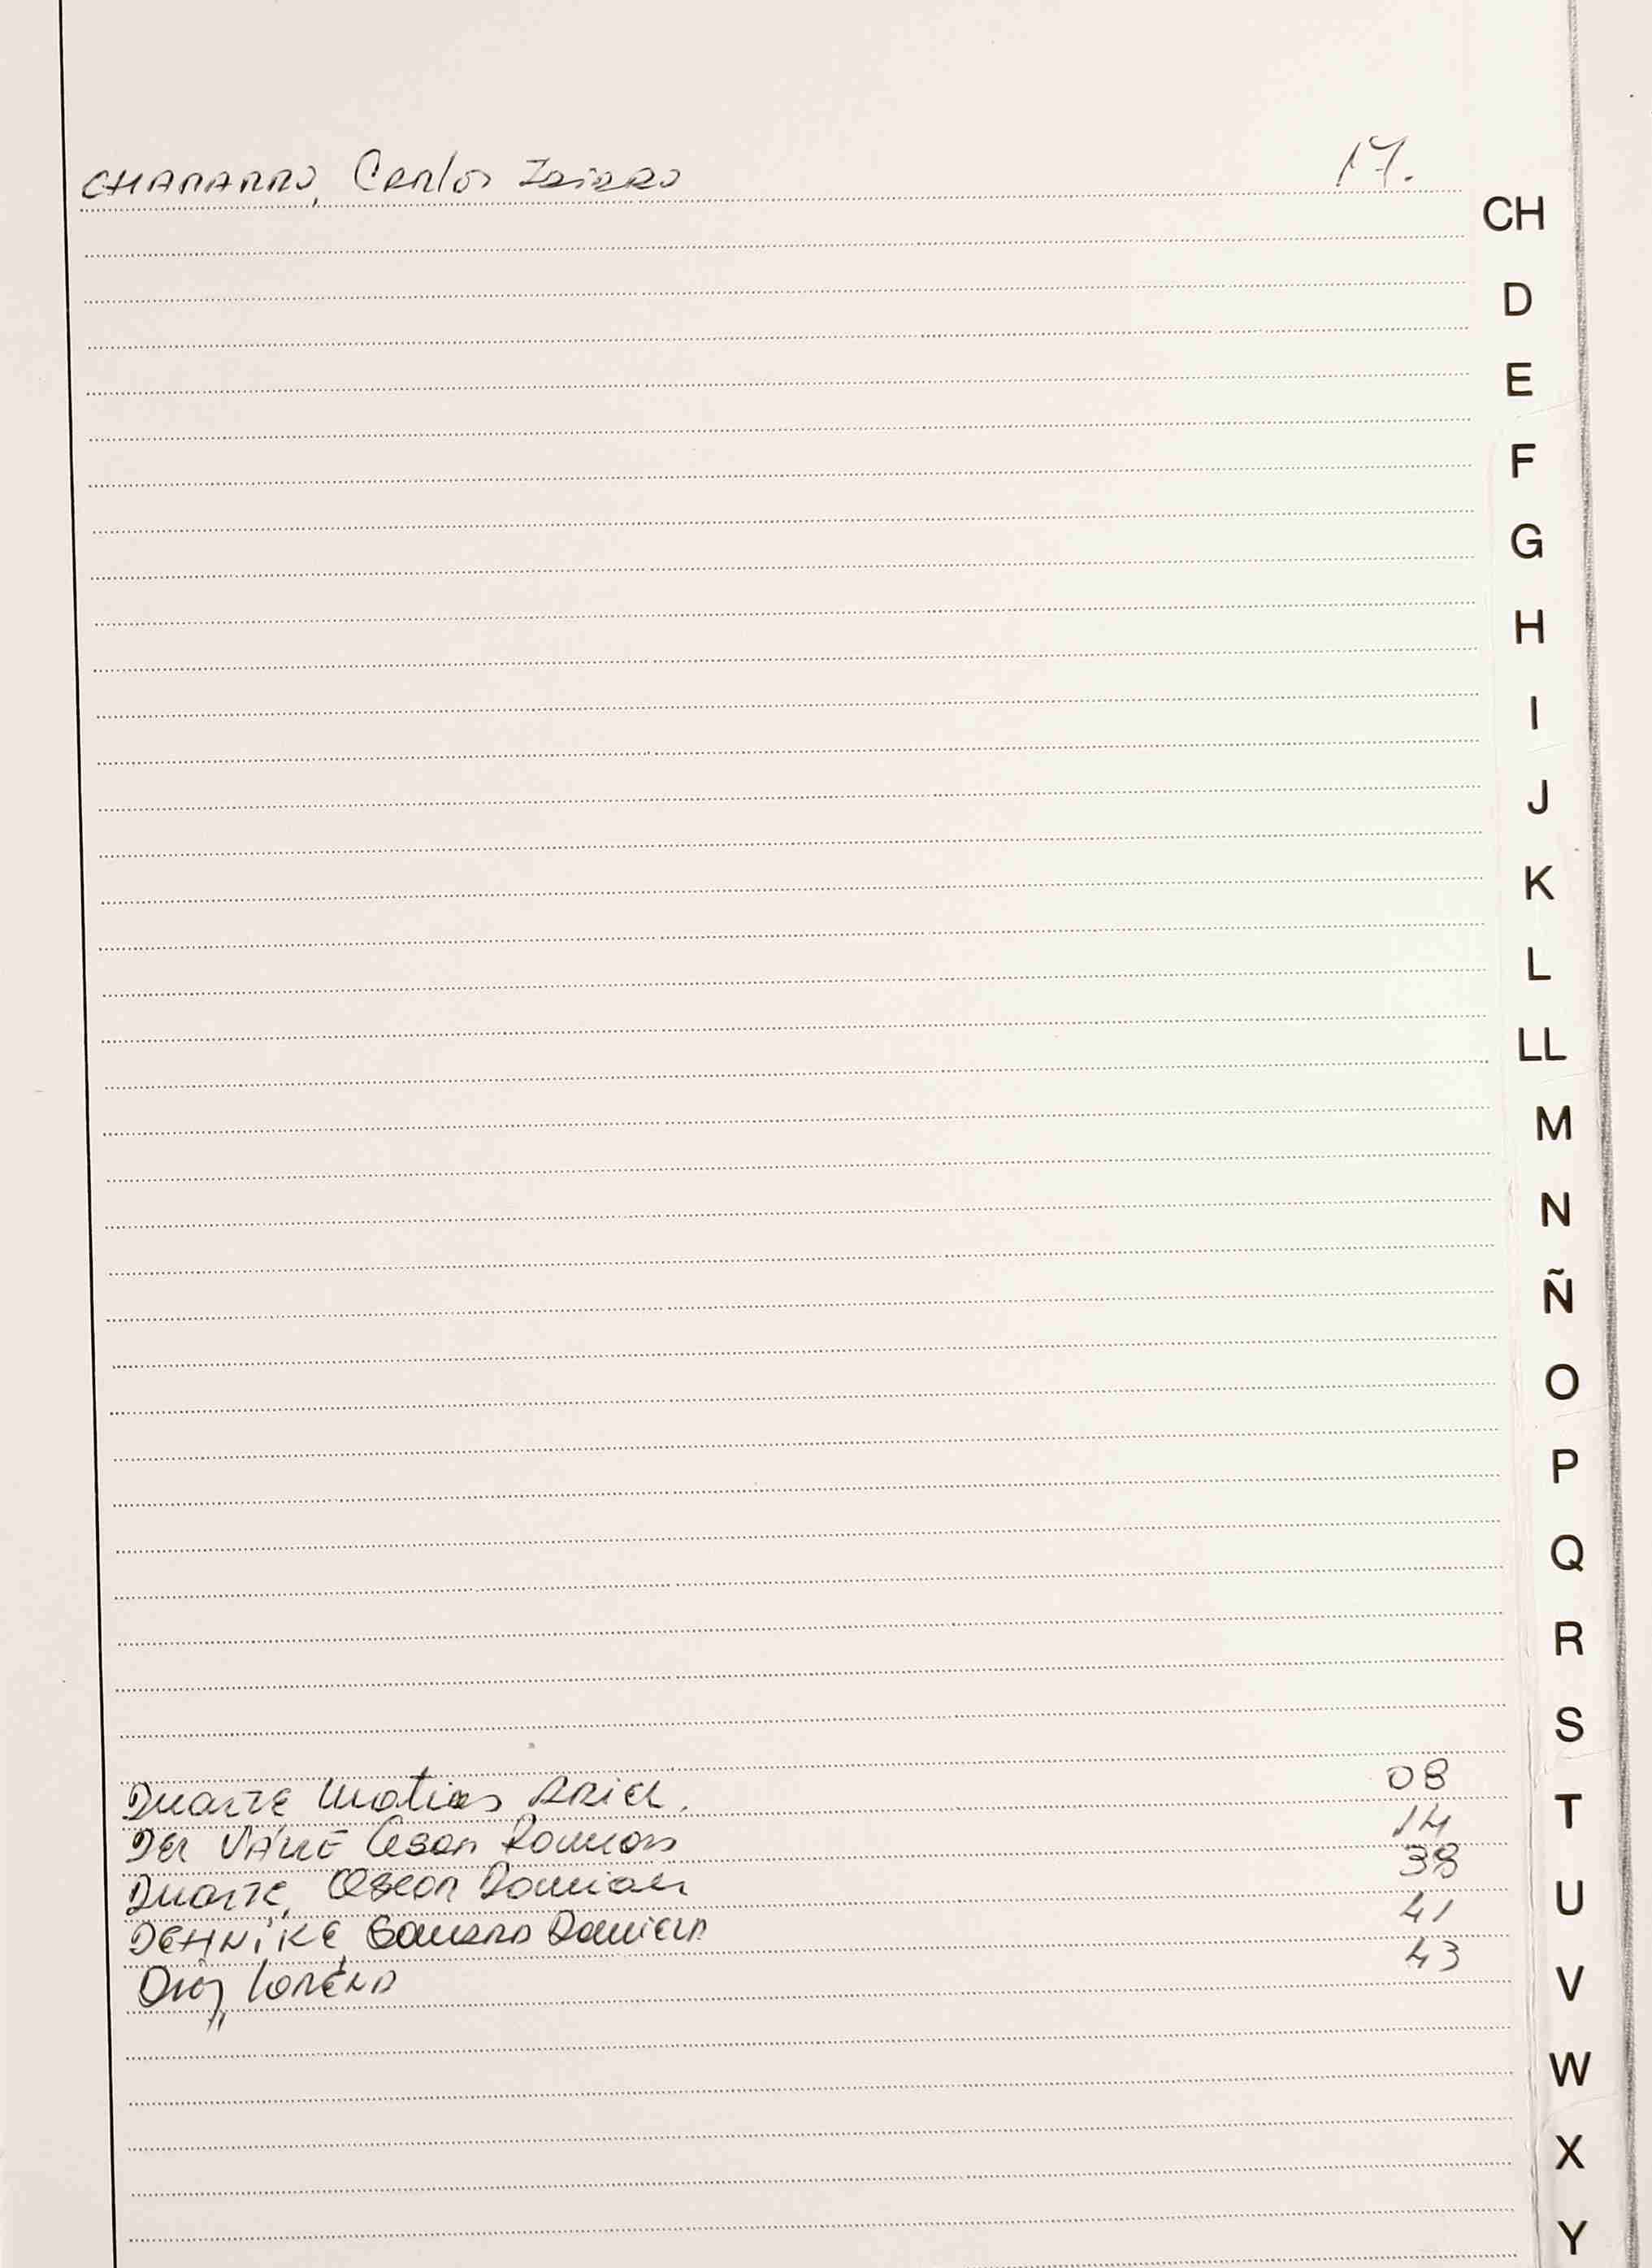 CHAPARRO, Carlos Isidro 17.
CH
D
E
F
G
H
I
J
K
L
LL
M
N
Ñ
O
P
Q
R
S
Duarte Matias Ariel. 08
T
Del Valle Cesar Ramon 14
Duarte, Oscar Damian 38
U
DEHNIKE, Daniela 41
Diaz Lorena 43
V
W
X
Y